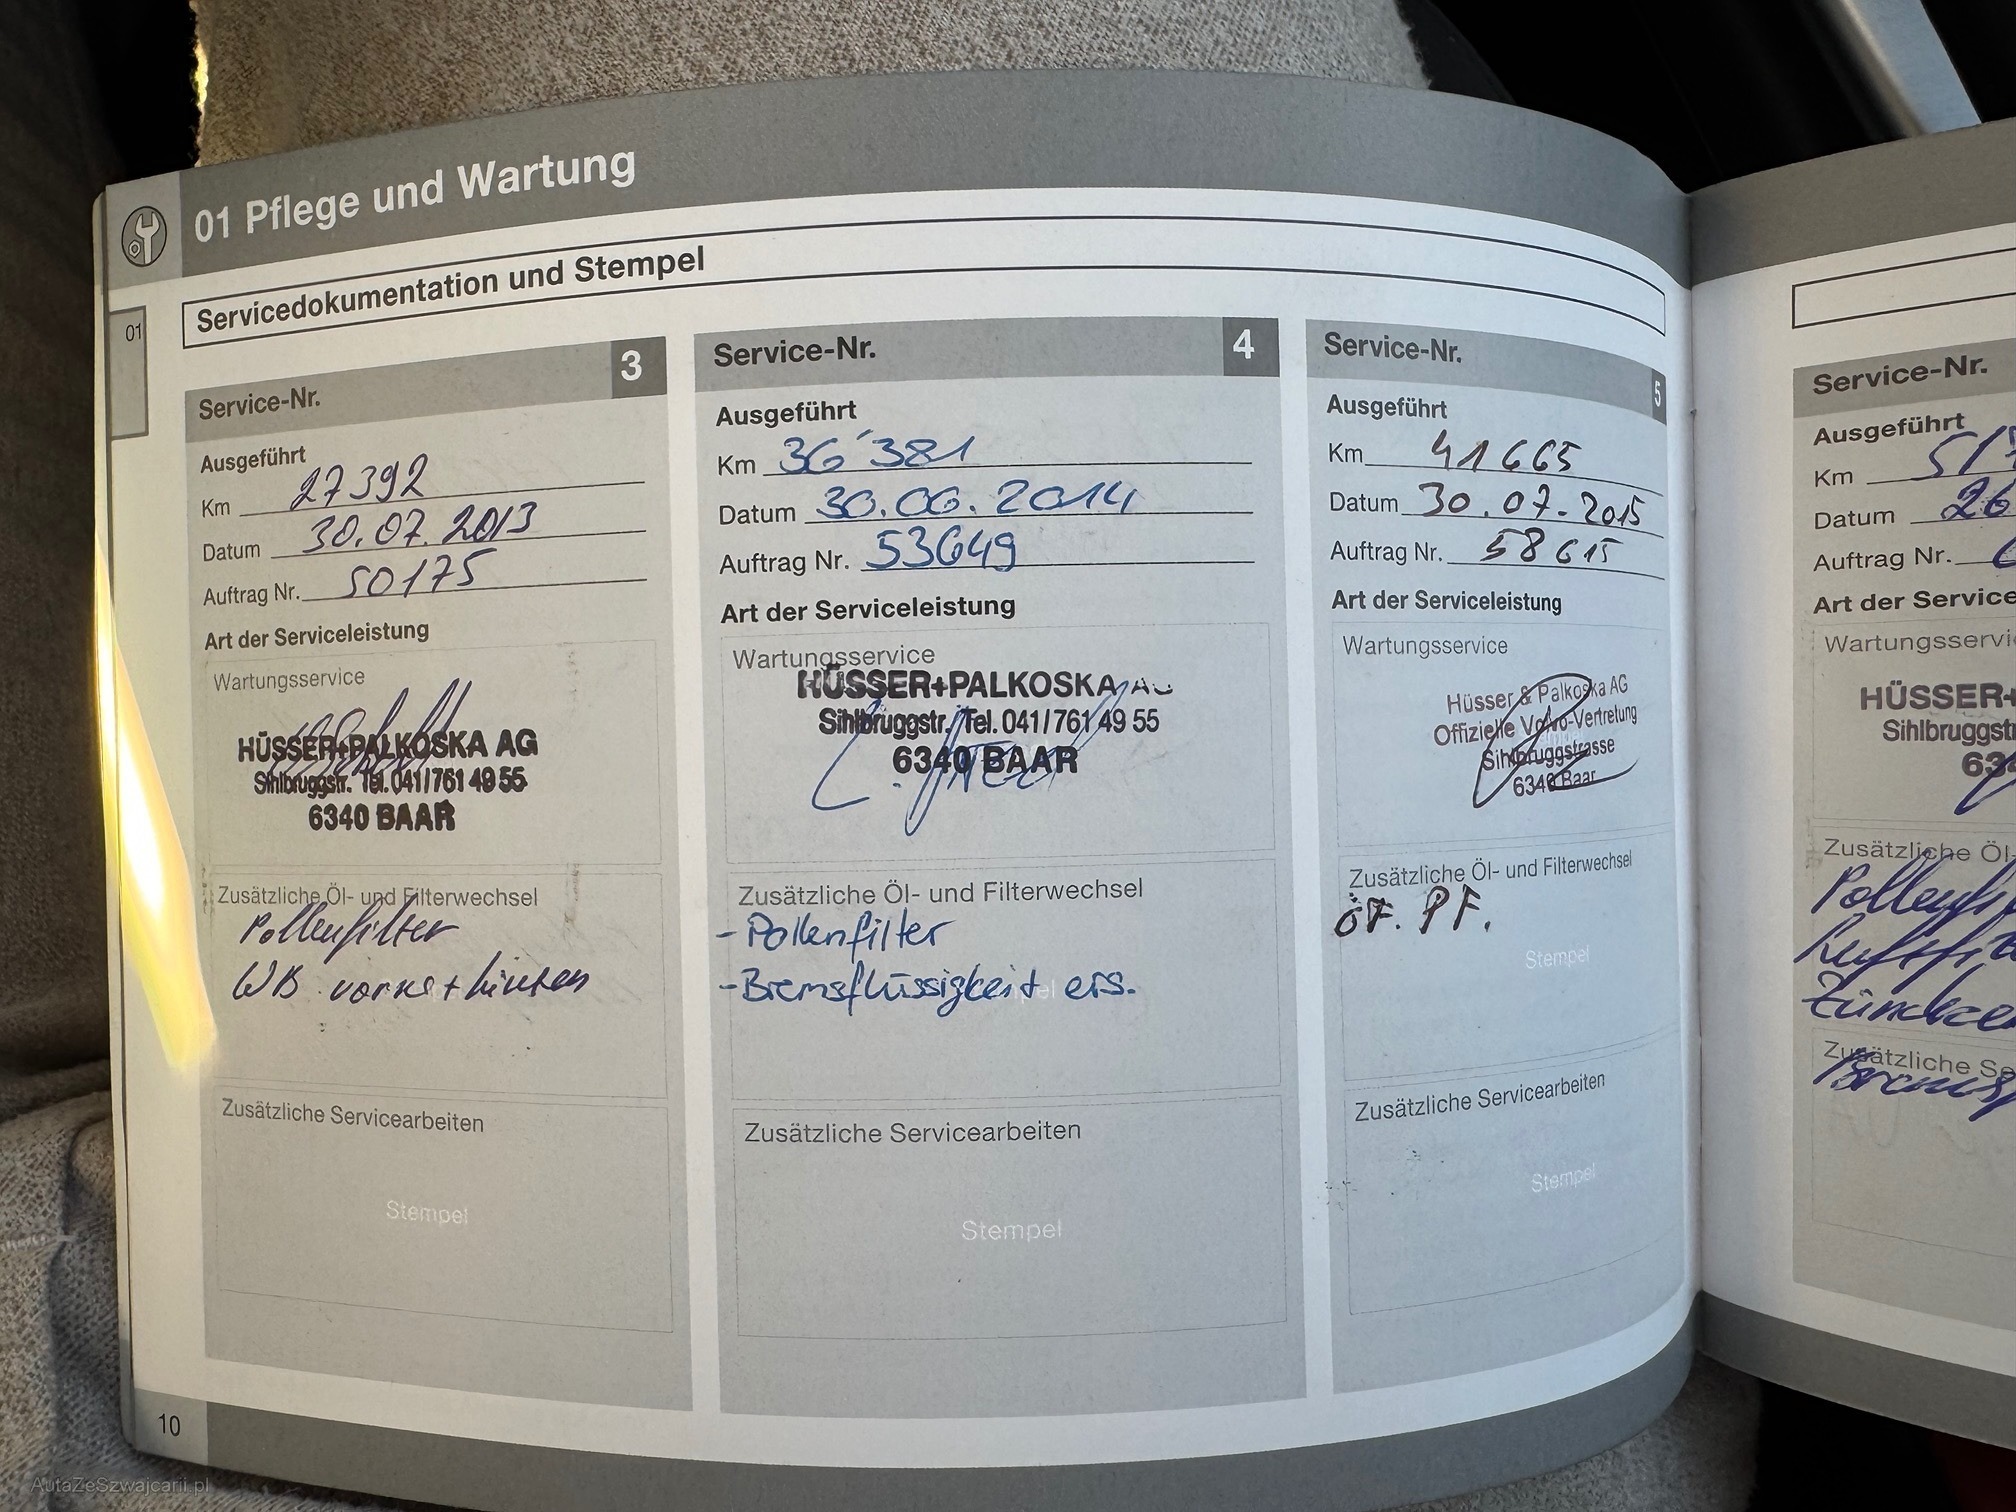 01 Pflege und Wartung
01
Servicedokumentation und Stempel
Service-Nr. 3
Ausgeführt
Km 27392
Datum 30.07.2013
Auftrag Nr. 50175
Art der Serviceleistung
Wartungsservice
HÜSSER+PALKOSKA AG
Sihlbruggstr. Tel. 041/761 49 55
6340 BAAR
Zusätzliche Öl- und Filterwechsel
Pollenfilter
WB vorne + hinten
Zusätzliche Servicearbeiten
Stempel
10
Service-Nr. 4
Ausgeführt
Km 36'381
Datum 30.06.2014
Auftrag Nr. 53649
Art der Serviceleistung
Wartungsservice
HÜSSER+PALKOSKA AG
Sihlbruggstr. Tel. 041/761 49 55
6340 BAAR
Zusätzliche Öl- und Filterwechsel
- Pollenfilter
- Bremsflüssigkeit ers.
Zusätzliche Servicearbeiten
Stempel
Service-Nr. 5
Ausgeführt
Km 41665
Datum 30.07.2015
Auftrag Nr. 58615
Art der Serviceleistung
Wartungsservice
Hüsser & Palkoska AG
Offizielle Volvo-Vertretung
Sihlbruggstrasse
6340 Baar
Zusätzliche Öl- und Filterwechsel
ÖF. PF.
Stempel
Zusätzliche Servicearbeiten
Stempel
Service-Nr.
Ausgeführt
Km
Datum 26
Auftrag Nr.
Art der Service
Wartungsservi
HÜSSER+
Sihlbruggst
Zusätzliche Öl-
Pollenfi
Luftfi
Zündke
Zusätzliche Se
Bremsf
AutaZeSzwajcarii.pl